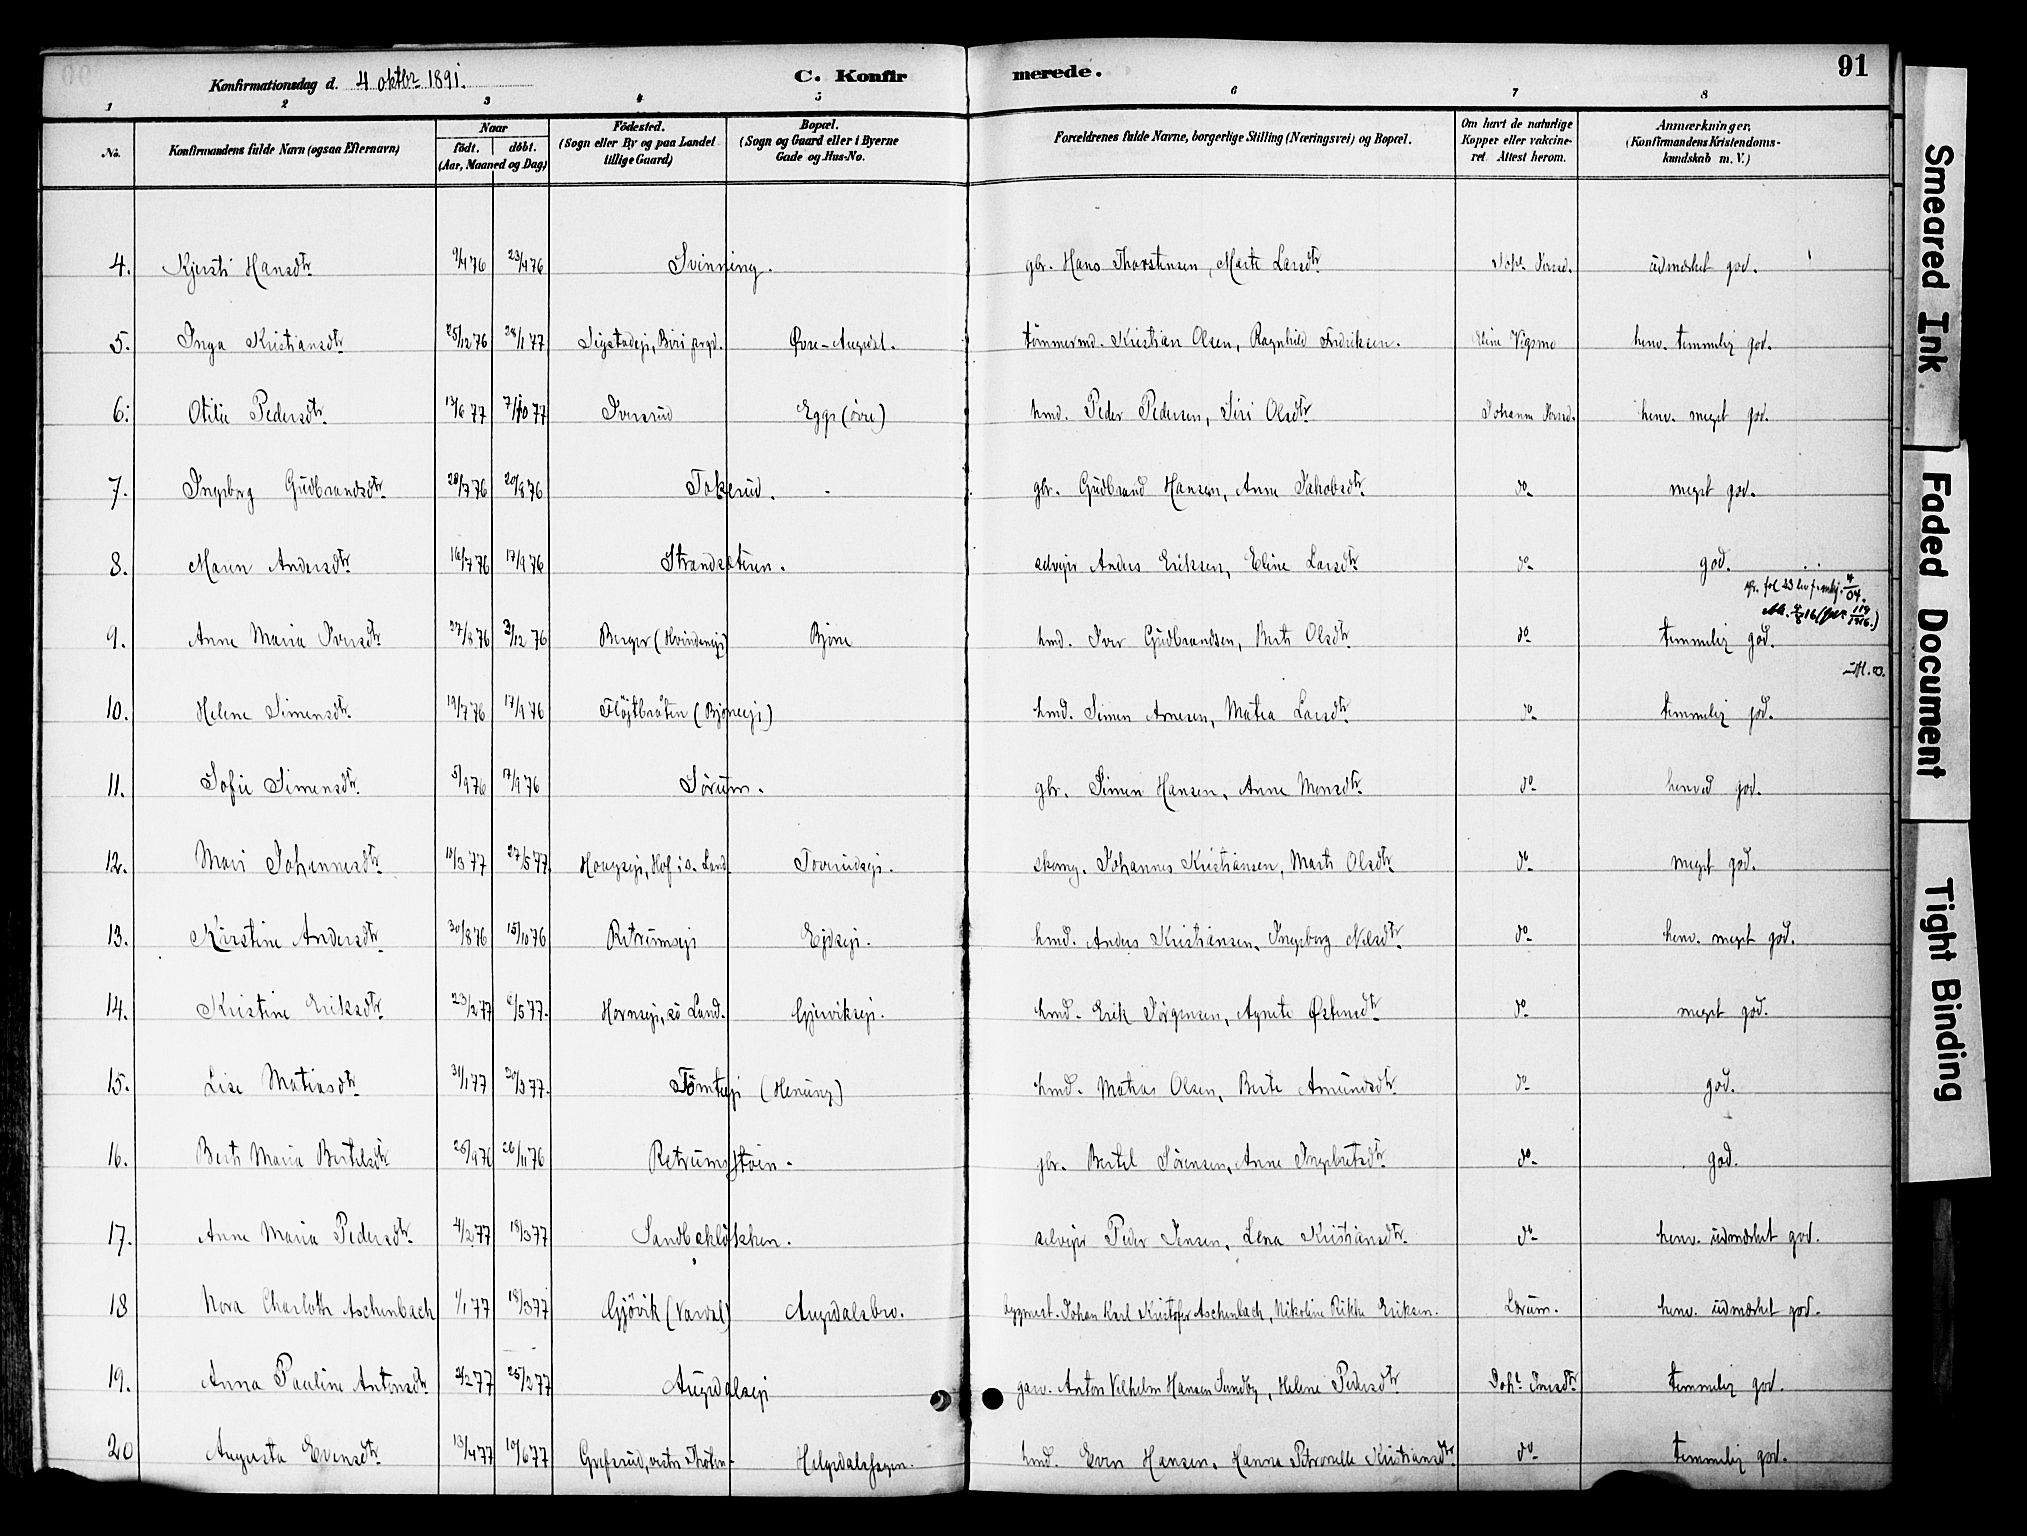 Konfirmationsdag d. 4 oktbr 1891.
C. Konfirmerede.
91
1 2 3 4 5 6 7 8
No.
Konfirmandens fulde Navn (ogsaa Efternavn)
Naar
födt. döbt.
(Aar, Maaned og Dag)
Födested.
(Sogn eller By og paa Landet tillige Gaard)
Bopæl.
(Sogn og Gaard eller i Byerne Gade og Hus-No.
Forældrenes fulde Navne, borgerlige Stilling (Næringsvei) og Bopæl.
Om havt de naturlige Kopper eller vakcineret. Attest herom.
Anmærkninger.
(Konfirmandens Kristendomskundskab m. V.)
4. Kjersti Hansdtr 9/4 76 23/4 76 Svinning. gbr. Hans Thorstensen, Marte Larsdtr udmærket god.
5. Inga Kristiansdtr 25/12 76 28/1 77 Sigstadeji, Biri prgd. Øvre-Augedal. tömmermd. Kristian Olsen, Ragnhild Fredriksen. Eline Vigsmo henv. temmelig god.
6. Otilie Pedersdtr 13/6 77 7/10 77 Iversrud Egge (övre) hmd. Peder Pedersen, Siri Olsdtr Johanne henv. meget god.
7. Ingeborg Gudbrandsdtr 28/7 76 20/8 76 Tokerud. - gbr. Gudbrand Hansen, Anne Jakobsdtr do meget god.
8. Maren Andersdtr 16/7 76 17/9 76 Strandsæteren. selvejer Anders Eriksen, Eline Larsdtr do god.
9. Anne Maria Iversdtr 27/8 76 3/12 76 Berger (Kvindeneji) Bjöne hmd. Iver Gudbrandsen, Berte Olsdtr do temmelig god.
10. Helene Simensdtr 19/7 76 17/9 76 Flöjtbråten (Bjöneeji) hmd. Simen Arnesen, Matea Larsdtr do temmelig god.
11. Sofie Simensdtr 5/9 76 17/9 76 Sörum. gbr. Simen Hansen, Anne Monsdtr do henved god.
12. Mari Johannesdtr 10/3 77 27/5 77 Haugseji, Hof i S. Land. Toverudseji. skomg. Johannes Kristiansen, Marte Olsdtr do meget god.
13. Kirstine Andersdtr 30/8 76 15/10 76 Retrumseji Ejdseji. hmd. Anders Kristiansen, Ingeborg Nelsdtr do henv. meget god.
14. Kristine Eriksdtr 23/2 77 6/5 77. Hornseji, sö Land. GjeviksEji. hmd. Erik Jörgensen, Agnete Östensdtr do meget god.
15. Lise Matiasdtr 31/1 77 30/3 77. Tömteeji (Henung) hmd. Mathias Olsen, Berte Amundsdtr do god.
16. Berte Maria Bertelsdtr 25/9 76 26/11 76 Retrumsstoen. gbr. Bertel Sörensen, Anne Ingebretsdtr do god.
17. Anne Maria Pedersdtr 4/2 77 18/3 77 Sandbeklökken. selvejer Peder Jensen, Lena Kristiansdtr. do henv. udmærket god.
18 Nora Charlotte Aschenbach 1/1 77 18/3 77 Gjövik (Vardal) Augedalsbro. bygmest. Johan Karl Kristofer Aschenbach, Nikoline Rikke Eriksen. Lærum. henv. udmærket god.
19. Anna Pauline Antonsdtr 2/2 77 25/2 77 Augedalseji garv. Anton Vilhelm Hansen Sundby, Helene Pedersdtr temmelig god.
20 Augusta Evensdtr 13/4 77 10/6 77 Grefsrud, vestre Thoten- Helgedalshagen. hmd. Even Hansen, Hanna Petronelle Kristiansdtr do temmelig god.
Smeared Ink
Faded Document
Tight Binding